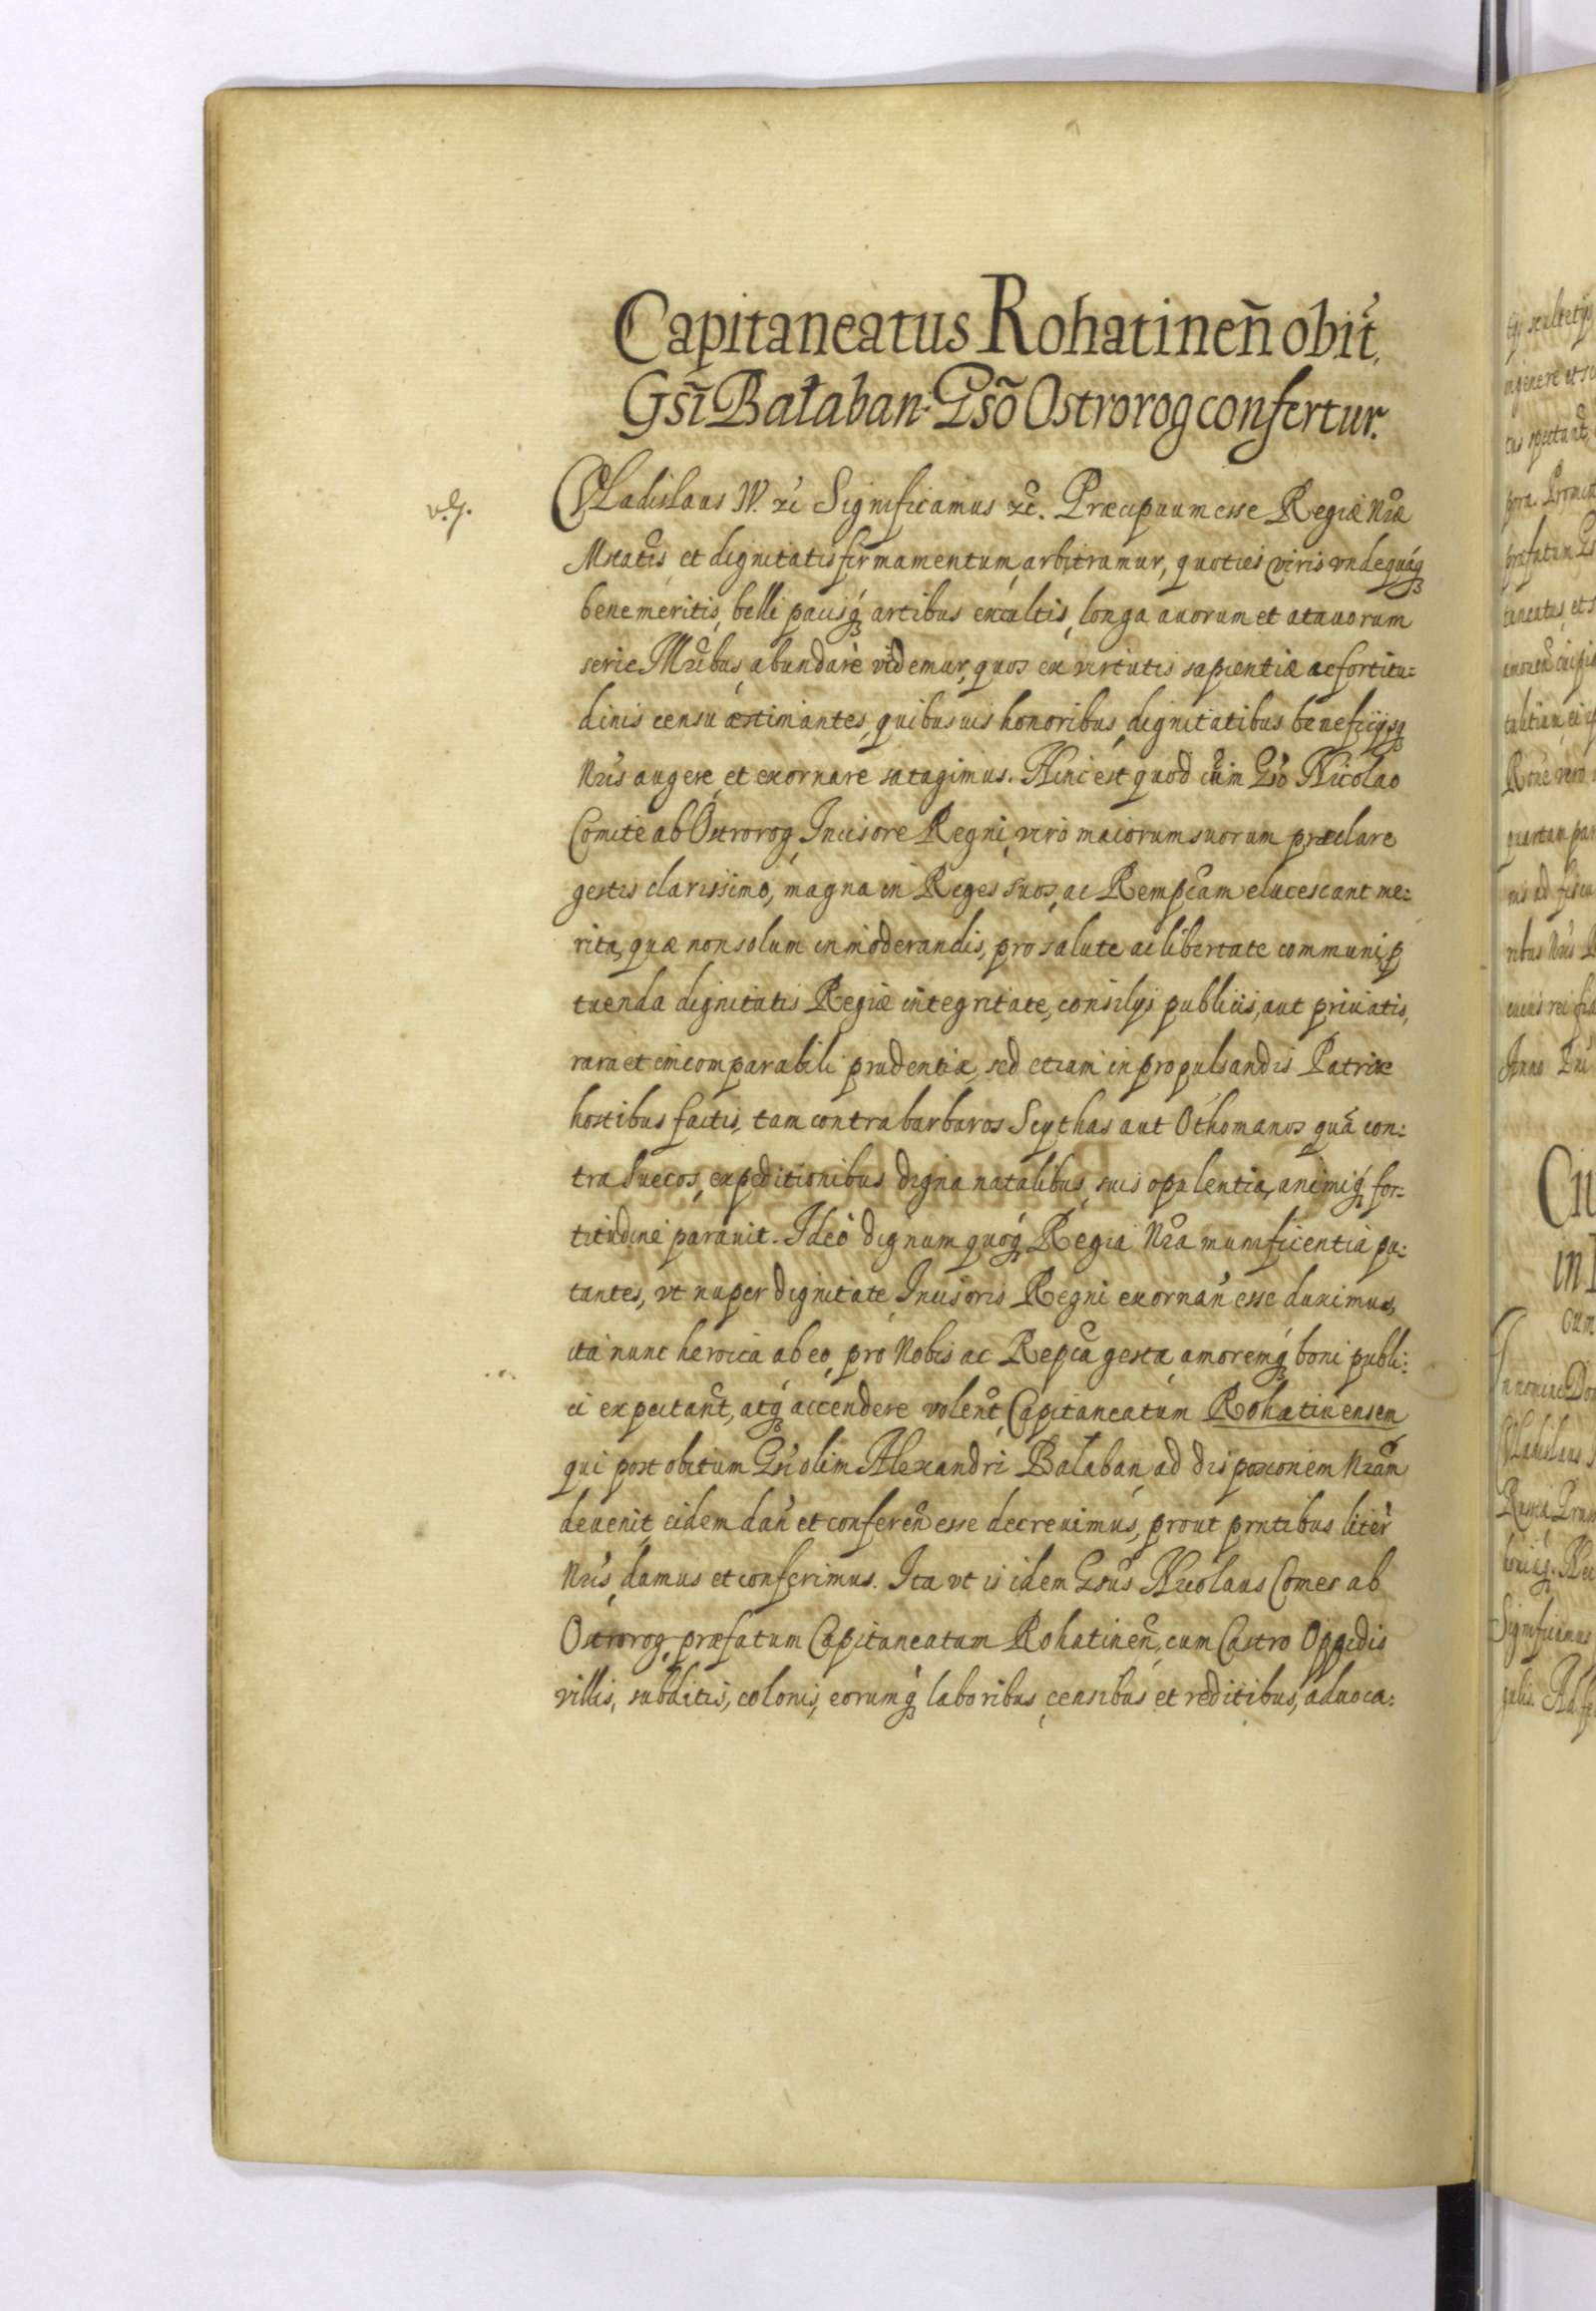 Capitaneatus Rohatineñ obit,
Gsi Bałaban. Gsõ Ostrorog confertur.
v. g.
Vladislaus IV. &c Significamus &c. Præcipuum esse Regiæ Nræ
Mtatis et dignitatis firmamentum, arbitramur, quoties viris undequáq
bene meritis, belli pacisq́ artibus excultis, longa auorum et atauorum
serie Nribus, abundare videmur, quos ex virtutis sapientiæ ac fortitu:
dinis censu æstimantes, quibusuis honoribus, dignitatibus beneficijsq
Nris augere, et exornare satagimus. Hinc est quod cum Gso Nicolao
Comite ab Ostrorog, Incisore Regni, viro maiorum suorum præclare
gestis clarissimo, magna in Reges suos, ac Rempcam elucescant me:
rita, quæ non solum in moderandis, pro salute ac libertate communi, p
tuenda dignitatis Regiæ integritate, consilijs publicis, aut priuatis,
rara et incomparabili prudentia, sed etiam in propulsandis Patriæ
hostibus factis, tam contra barbaros Scythas aut Othomanos quã con:
tra Suecos, expeditionibus digna natalibus, suis opulentia, animiq́ for:
titudine parauit. Ideò dignum quoq́ Regia Nra munificentia pu:
tantes, vt nuper dignitate Incisoris Regni exornan̄ esse duximus,
ita nunc heroica ab eo, pro Nobis ac Repca gesta, amoremq́ boni publi:
ci expectant, atq́ accendere volent, Capitaneatum Rohatinensem
qui post obitum Gsi olim Alexandri Bałaban, ad disposionem Nram
deuenit, eidem dan̄ et conferen̄ esse decreuimus, prout prntibus liter
Nris, damus et conferimus. Ita vt is idem Gsus Nicolaus Comes ab
Ostrorog, præfatum Capitaneatum Rohatinen̄, cum Castro Oppidis
villis, subditis, colonis, eorumq́ laboribus, censibus et reditibus, aduoca: